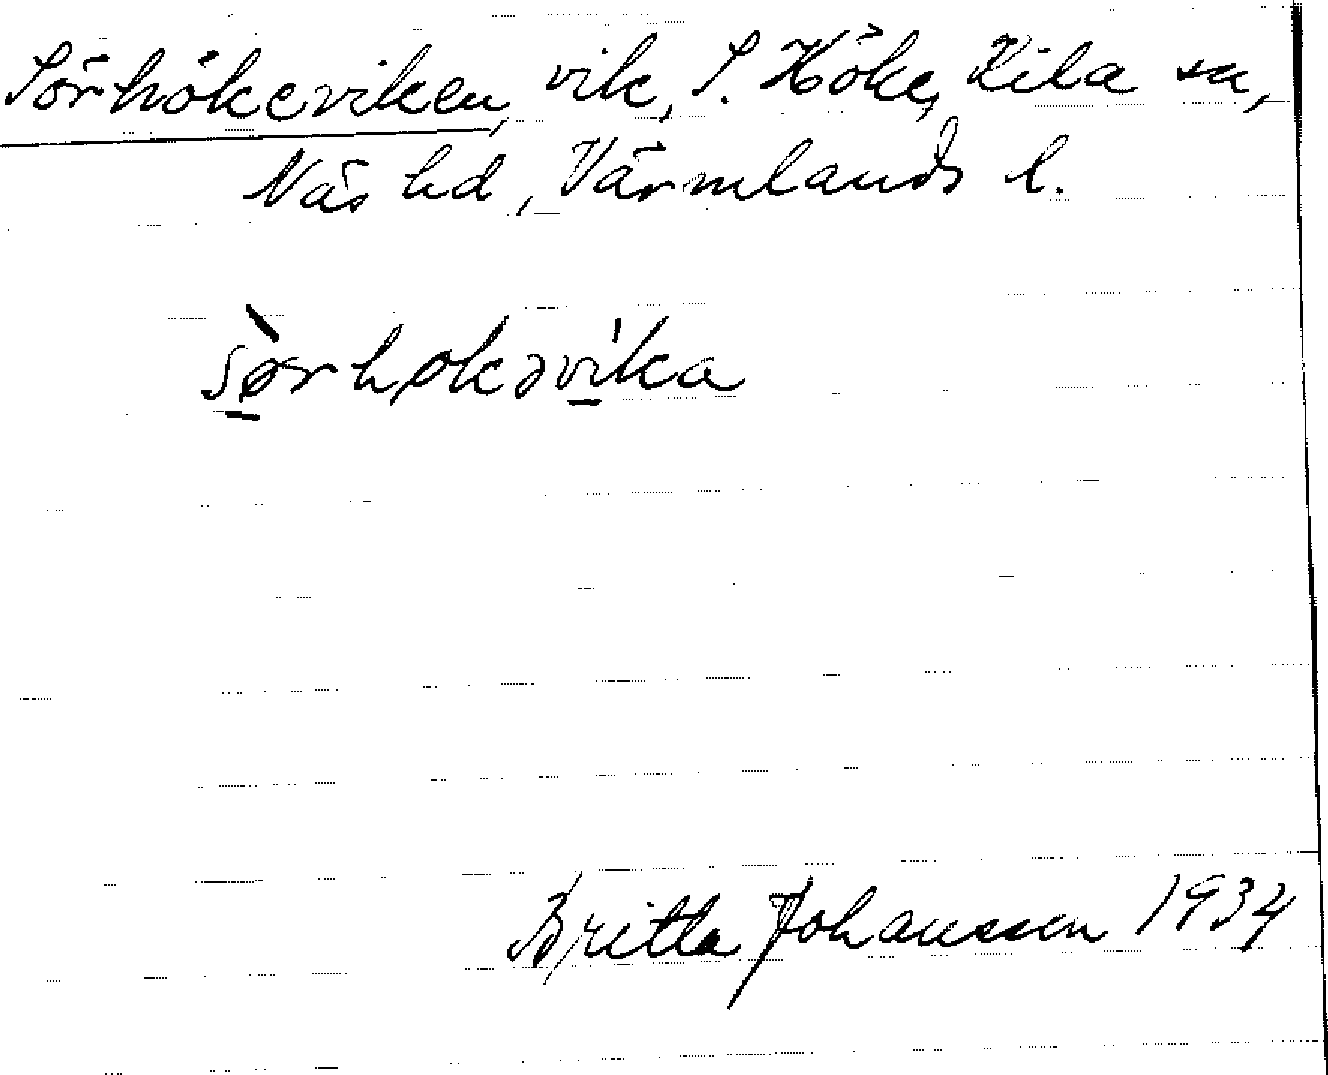 Sörhökeviken, vik, S. Höke, Kila sn,
Näs hd, Värmlands l.
sørhøkəvika
Britta Johanssen 1934